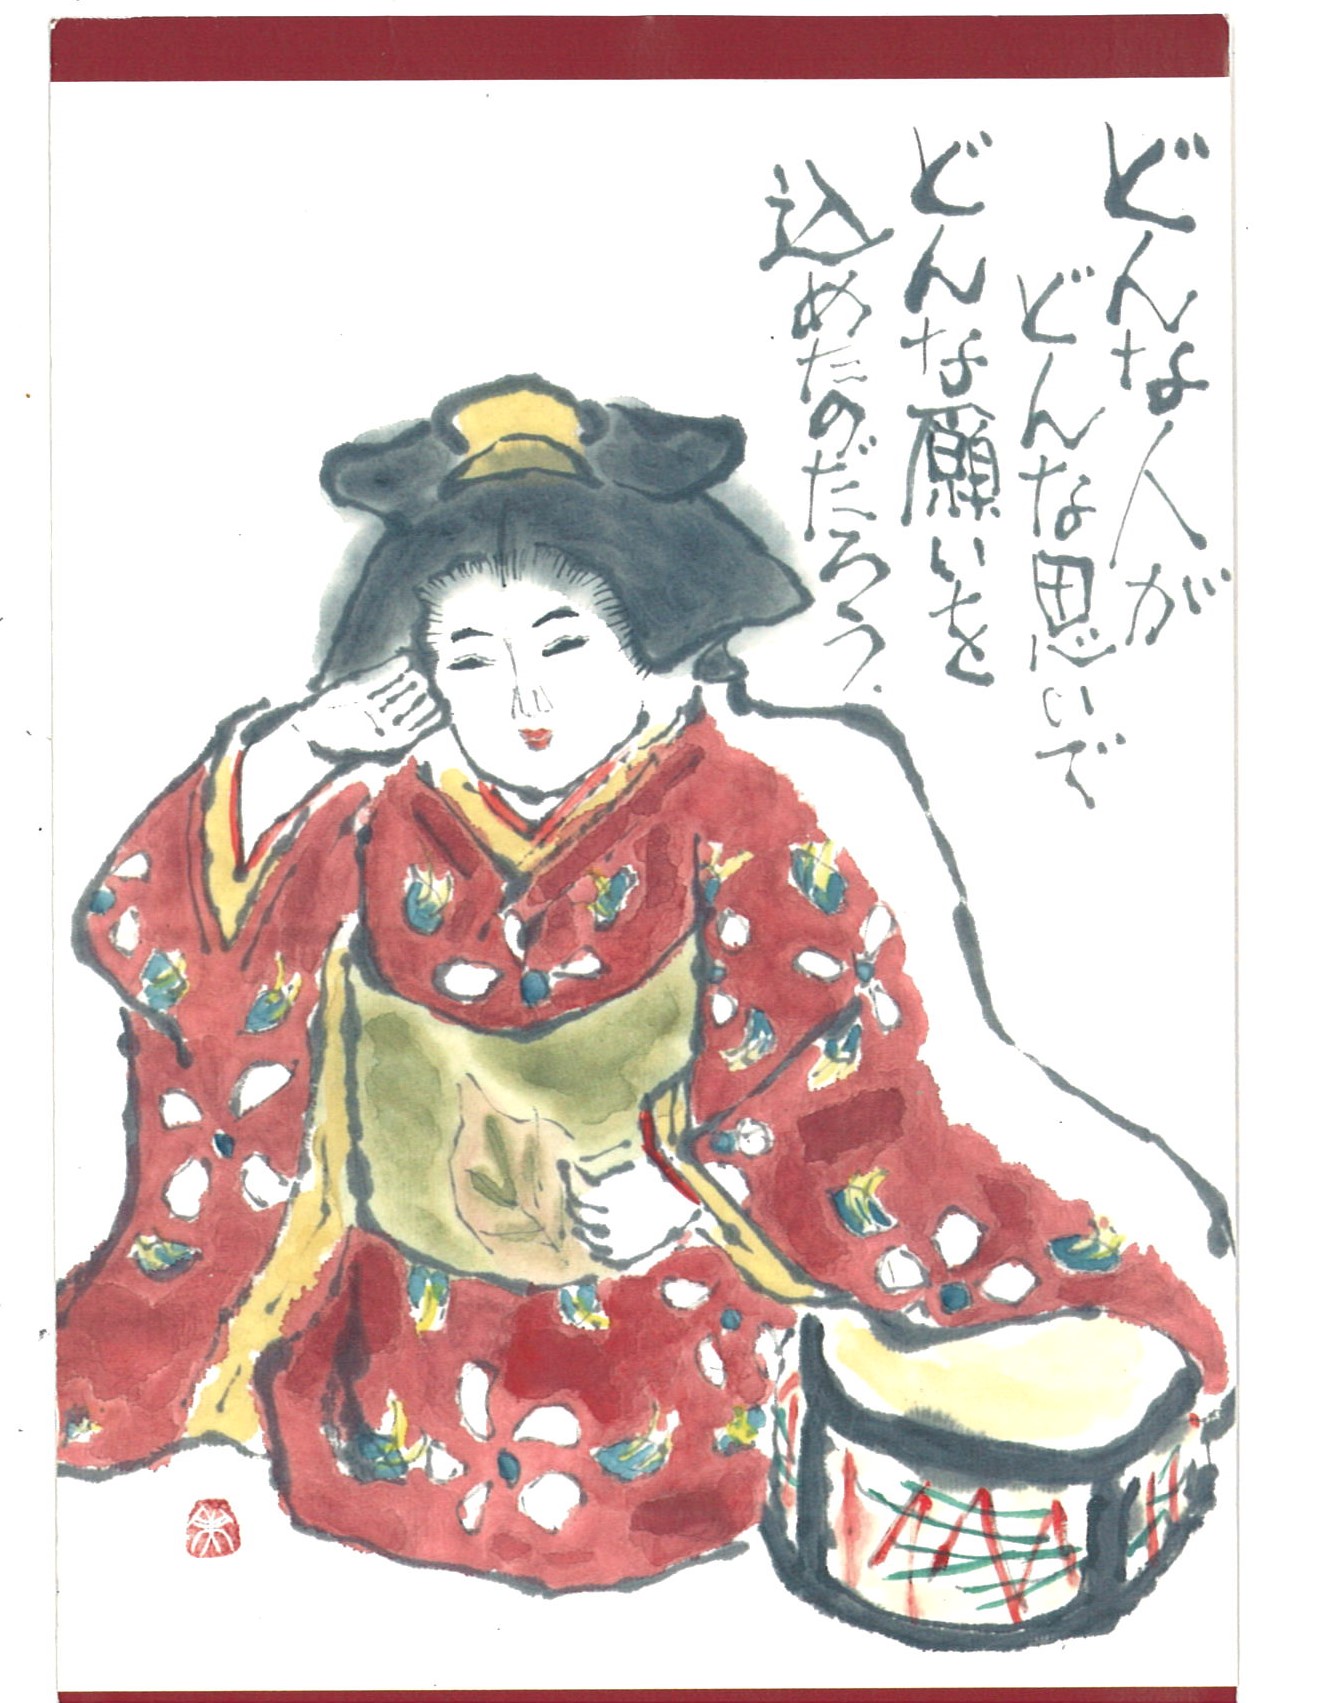 どんな人が
どんな思いで
どんな願いを
込めたのだろう.